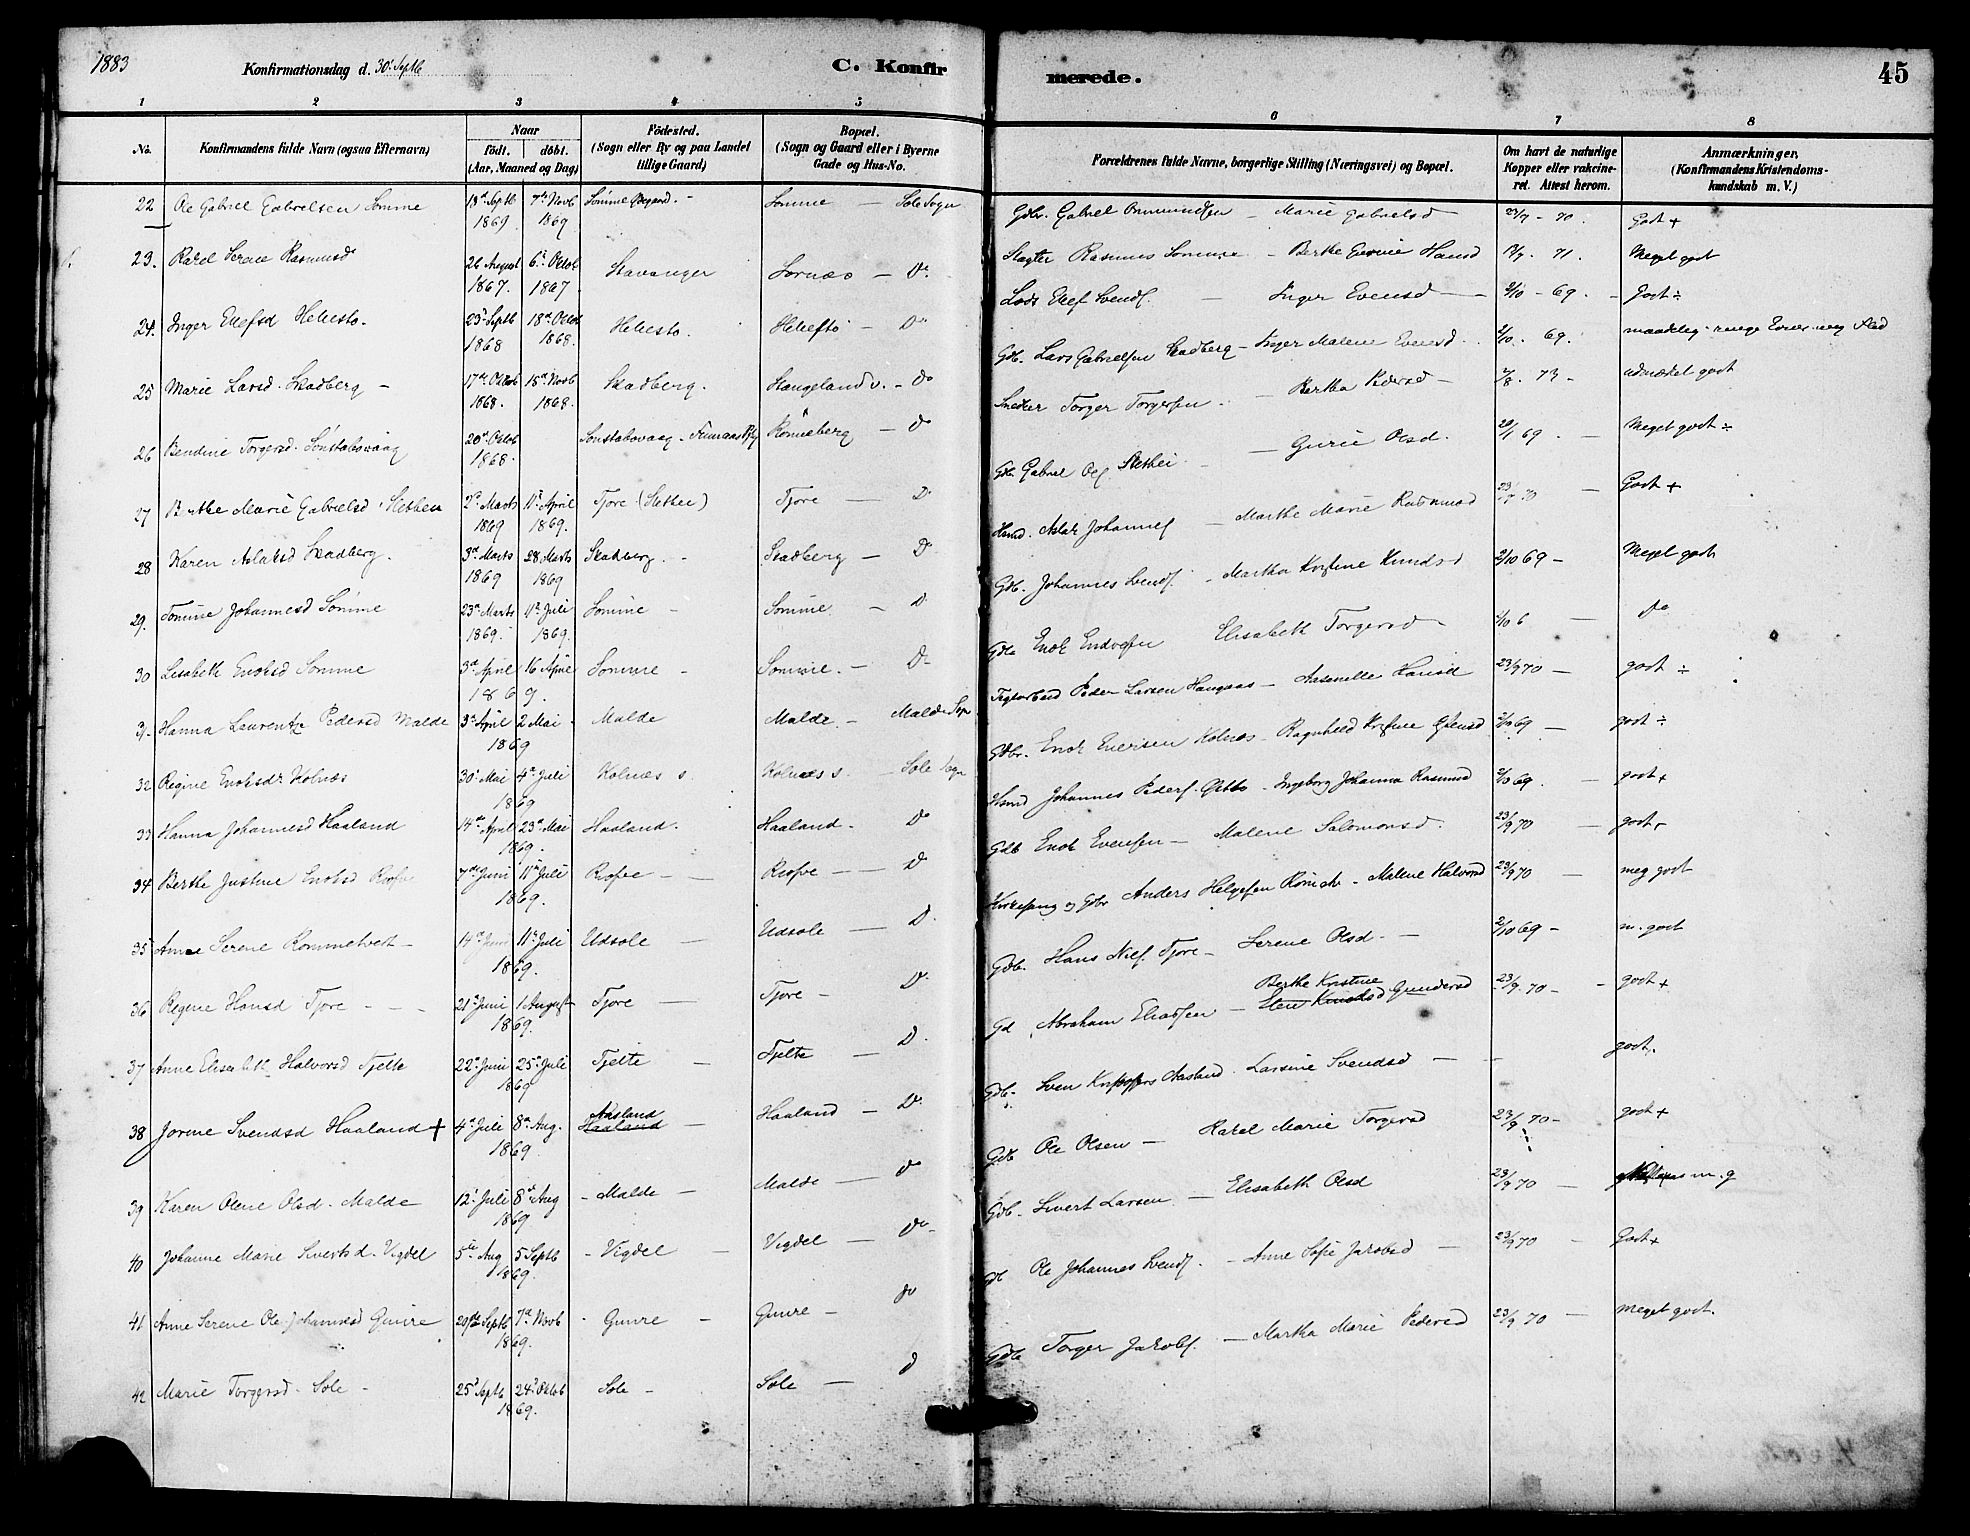 1883
Konfirmationsdag d. 30' Septb
C. Konfirmerede.
45
1 2 3 4 5 6 7 8
No.
Konfirmandens fulde Navn (ogsaa Efternavn)
Naar
födt. döbt.
(Aar, Maaned og Dag)
Födested.
(Sogn eller By og paa Landet
tillige Gaard)
Bopæl.
(Sogn og Gaard eller i Byerne
Gade og Hus-No.
Forældrenes fulde Navne, borgerlige Stilling (Næringsvei) og Bopæl.
Om havt de naturlige
Kopper eller vakcine-
ret. Attest herom.
Anmærkninger,
(Konfirmandens Kristendoms-
kundskab m. V.)
22 Ole Gabriel Gabrielsen Sömme 18de Septb 1869 7de Novb 1869 Sömme Sömme — Sole Sogn Gdbr. Gabriel Ommundsen — Marie Gabrielsd 23/9 - 70. Godt +
23. Karel Serene Rasmusd 26 August 1867. 6te Oktob 1867 Stavanger Sörnæs — Do. Slagter Rasmus Sömme - Berthe Hansd 71. Meget godt
24. Inger Ellefsd Hellestö. 23de Septb 1868 18de Oktob 1868. Hellestö. Hellestö — Do Lods Ellef Svends. — Inger Evensd — 2/10 - 69. - Godt ÷
25 Marie Larsd. Skadberg - 17de Oktob 1868. 15de Novb 1868. Skadberg. Stangeland v. - Do Gdb. Lars Gabrielsen Skadberg - Inger Malene Evensd. 2/10. 69. maadelig - ringe Evner - meg Flid
26 Bendine Torgersd. Sönstabövaag 20de Oktob 1868. Sonstabovaag - Rönneberg — Do Snedker Torger Torgersen. — Bertha Pedersd — 73 - udmærket godt
27 Berthe Marie Gabrielsd Slethei 2de Marts 1869 11te April 1869. Tjore (Slethei) Tjore — Do Gdb. Gabriel Ols. Slethei — Gurie Olsd. 69. - Meget godt ÷
28 Karen Aslaksd Skadberg. 3de Marts 1869 28 Marts 1869 Skadberg. - Skadberg — Do Husmd. Aslak Johannes. — Marthe Marie Rasmusd 23/9 70 — Godt +
29. Tomine Johannesd Sömme 23de Marts 1869. 4de Juli 1869. Sömme - Sömme — Do Gdb. Johannes Svends. - Martha Kristine Knudsd 2/10 69 - Meget godt
30 Lisabeth Enoksd Sömme 3de April 16 April 1869. Sömme - Sömme. - Do Gdb Enok Endresen Elisabeth Torgersd 2/10 6 — Do
31. Hanna Laurentze Pedersd Malde 3de April 2 Mai 1869 Malde Malde. - Malde Sogn Peder Larsen Haugaas - Hansd 23/9 70 — godt ÷
32 Regine Enoksdr Kolnæs 30te Mai 4de Juli 1869 Kolnæs s. Kolnæs s. — Sole Sogn Gdbr. Enok Kolnæs - Ragnhild Kristine 2/10 69 — godt ÷
33 Hanna Johannesd Haaland 14de April 23de Mai 1869. Haaland. Haaland. Do Husmd Johannes Peders. - Ingeborg Johanna Rasmusd 2/10 69. - godt +
34 Berthe Justine Enoksd 7de Juni 11te Juli 1869. — — — Do Gdb Enok Evensen — Malene Salomonsd. 23/9 70 — godt
35 Anne Serene Rommetvedt - 14de Juni 11te Juli 1869. Udsole — Udsole — Do. Kirkesang og Gdbr Anders Helgesen - Malene Halvorsd 23/9 70 — meg godt
36 Regine Hansd Tjore - - - 21de Juni 1. August 1869. Tjore — Tjore - Do Gdb. Hans Niels. Tjore - Serene Olsd. — 2/10 69 - m. godt
37 Anne Elisabeth Halvorsd Tjelte 22de Juni 25de Juli 1869 Tjelte — Tjelte — Do. Gd Abraham Eliassen — Berthe Kristine Gundersd 23/9. 70 - - godt +
38 Jorine Svendsd Haaland + 4de Juli 8de Aug. 1869. Aasland Haaland — Haaland — Do. Gdb. Sven Aasland. Larsine Svendsd — — godt.
39 Karen Olene Olsd. Malde 12te Juli 8de Aug 1869 - Malde — Malde — Do Gdb Ole Olsen — Karel Marie Torgersd 23/9 70 - godt +
40 Johanne Marie Sivertsd. Vigdel 5te Aug 5 Septb 1869. - Vigdel — Vigdel — Do Gdb. Sivert Larsen — Elisabeth Olsd 23/9 70 — m. g
41 Anne Serene Ole Johannesd Gimre 20de Septb 7de Novb 1869. - Gimre - Gimre - Do Gdb Ole Johannes Svends. - Anne Sofie Jakobsd — 23/9 70 — Godt +
42 Marie Torgersd. Sole - 25de Septb 24de Oktob 1869. Sole - Sole — D Gdb Torger Jakobs. — Martha Marie Pedersd 23/9 70 — Meget godt.